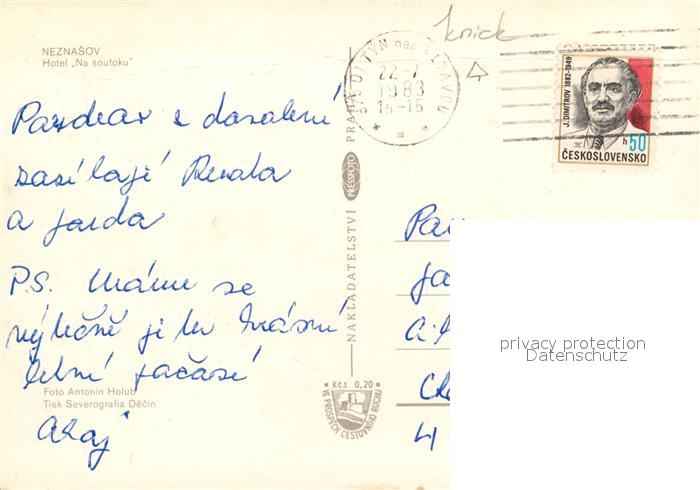 NEZNAŠOV
Hotel „Na soutoku"
Pozdrav z dovolené
zasílají Renata
a Jarda
P.S. Máme se
výtečně je tu krásné
letní počasí
Ahoj
Foto Antonín Holub
Tisk Severografia Děčín
NAKLADATELSTVÍ PRESSFOTO PRAHA
Kčs 0,20
VE PROSPĚCH CESTOVNÍHO RUCHU
knick
TÝN nad VLTAVOU
22-7
1983
14-15
J. DIMITROV 1882-1949
h 50
ČESKOSLOVENSKO
4
privacy protection
Datenschutz